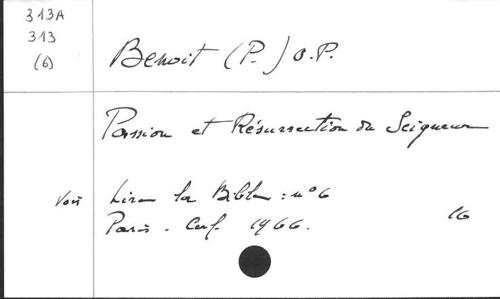 313A
313
(6)
Benoit (P.) O.P.
Passion et Résurrection du Seigneur
Voir Lire la Bible : n° 6
Paris. Cerf. 1966.
16